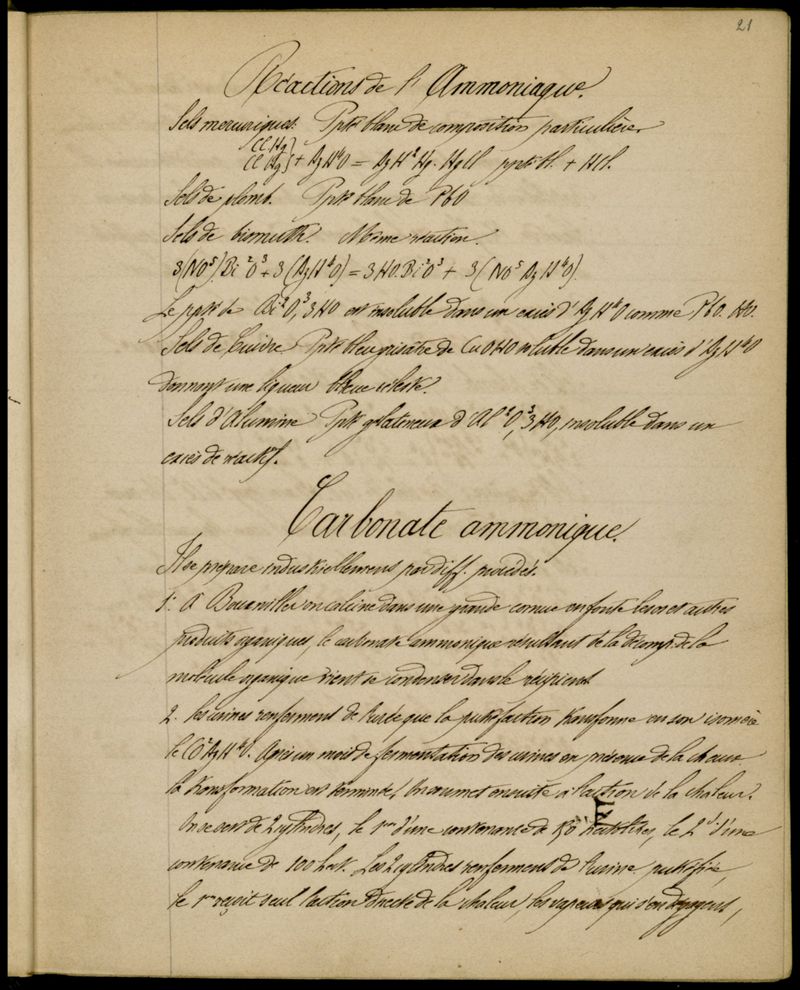 21
Réactions de l'Ammoniaque.
Sels mercuriques. Ppté blanc de composition particulière
Cl Hg
Cl Hg } + AzH⁴O = AzH²Hg. HgCl ppté bl. + HCl.
Sels de plomb. Ppté blanc de PbO
Sels de bismuth. Même réaction.
3(NO⁵)Bi²O³ + 3(AzH⁴O) = 3HO.Bi²O³ + 3(NO⁵AzH⁴O)
Le ppté de Bi²O³,3HO est insoluble dans un excès d'AzH⁴O comme PbO.HO.
Sels de Cuivre Ppté bleu grisâtre de CuOHO soluble dans un excès d'AzH⁴O
donnant une liqueur bleue céleste.
Sels d'Alumine Ppté gélatineux d'Al²O³,3HO, insoluble dans un
excès de réactif.
Carbonate ammonique.
Il se prépare industriellement par diff. procédés.
1. A on calcine dans une grande cornue en fonte les os et autres
produits organiques, le carbonate ammonique résultant de la décomp. de la
molécule organique vient se condenser dans le récipient
2. Les urines renferment de l'urée que la putréfaction transforme en son isomère
le CO²AzH⁴O. Après un mois de fermentation des urines en présence de la chaux
la transformation est terminée. On soumet ensuite à l'action de la chaleur.
On se sert de 2 cylindres, le 1er d'une contenance de 50 hectolitres, le 2d d'une
contenance de 100 hect. Les 2 cylindres renferment de l'urine putréfiée,
le 1er reçoit seul l'action directe de la chaleur, les vapeurs qui s'en dégagent,